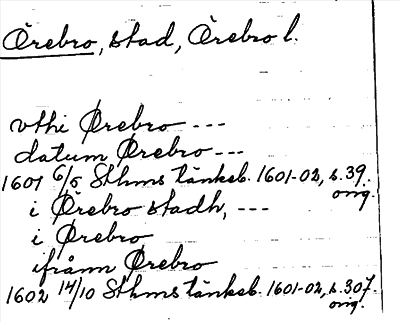 Örebro, stad, Örebro l.
vthi Ørebro ---
datum Ørebro ---
1601 6/5 Sthms tänkeb. 1601-02, s. 39.
orig.
i Ørebro stadh, ---
i Ørebro
ifrånn Ørebro
1602 14/10 Sthms tänkeb. 1601-02, s. 307.
orig.